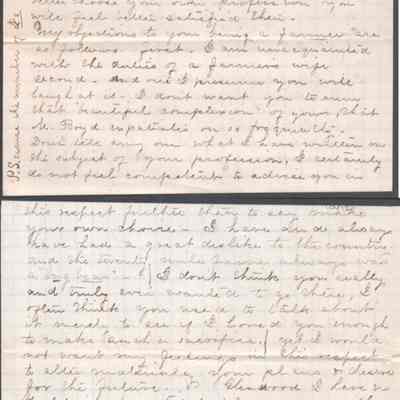 better choose your own profession you
will feel better satisfied then.
My objections to your being a farmer are
as follows first. I am unacquainted
with the duties of a farmers wife
second. and one I presume you will
laugh at it. I don't want you to ruin
that "beautiful complexion" of yours, that
M. Boyd expatiates on so frequently.
Don't tell any one what I have written on
the subject of your profession, I certainly
do not feel competent to advise you in
this respect further than to say make
your own choice. I have and always
have had a great dislike to the country
and the twenty mile always was
a bug bear. I don't think you really
and truly ever wanted to go there, I
often think you used to talk about
it merely to see if I loved you enough
to make such a sacrifice. yet I would
not want my feelings in this respect
to alter materially your plans & desires
for the future. I have no
P.S. excuse the number of